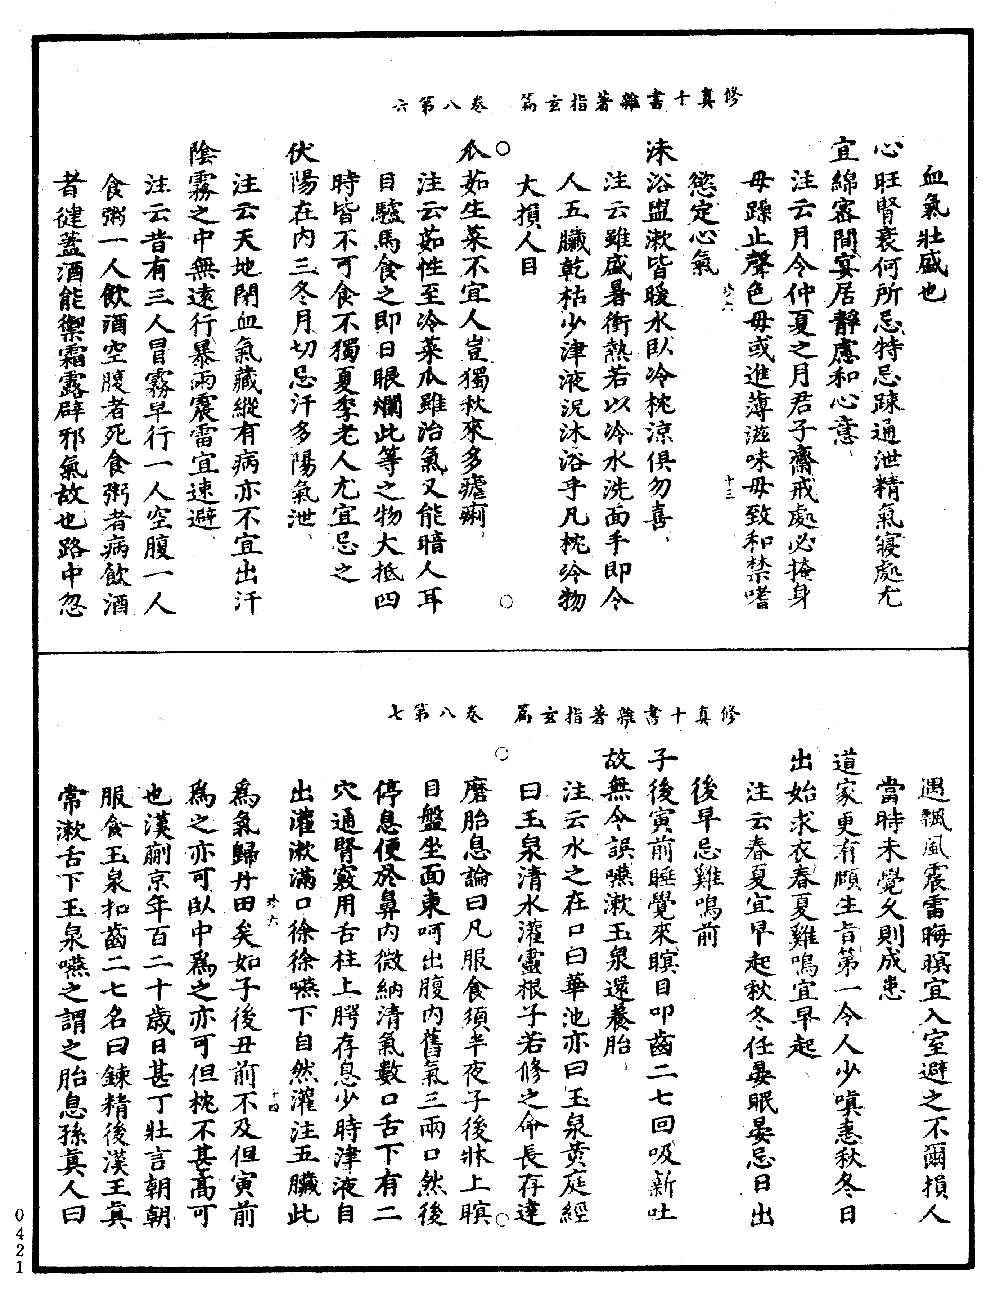 修真十書雜著指玄篇　卷八第六
血氣壯盛也
心旺腎衰何所忌特忌踈通泄精氣寢處尤
宜綿密間宴居靜慮和心意
注云月令仲夏之月君子齋戒處必掩身
毋躁止聲色毋或進薄滋味毋致和禁嗜
慾定心氣
沐浴盥漱皆暖水臥冷枕涼俱勿喜
注云雖盛暑衝熱若以冷水洗面手即令
人五臟乾枯少津液況沐浴乎凡枕冷物
大損人目
瓜茹生菜不宜人豈獨秋來多瘧痢
注云茹性至冷菜瓜雖治氣又能暗人耳
目驢馬食之即日眼爛此等之物大抵四
時皆不可食不獨夏季老人尤宜忌之
伏陽在內三冬月切忌汗多陽氣泄
注云天地閉血氣藏縱有病亦不宜出汗
陰霧之中無遠行暴雨震雷宜速避
注云昔有三人冒霧早行一人空腹一人
食粥一人飲酒空腹者死食粥者病飲酒
者健蓋酒能禦霜露辟邪氣故也路中忽
十三
修真十書雜著指玄篇　卷八第七
遇飄風震雷晦暝宜入室避之不爾損人
當時未覺久則成患
道家更有頤生旨第一令人少嗔恚秋冬日
出始求衣春夏雞鳴宜早起
注云春夏宜早起秋冬任晏眠晏忌日出
後早忌雞鳴前
子後寅前睡覺來瞑目叩齒二七回吸新吐
故無令誤嚥漱玉泉還養胎
注云水之在口曰華池亦曰玉泉黃庭經
曰玉泉清水灌靈根子若修之命長存達
磨胎息論曰凡服食須半夜子後牀上瞑
目盤坐面東呵出腹內舊氣三兩口然後
停息便於鼻內微納清氣數口舌下有二
穴通腎竅用舌柱上腭存息少時津液自
出灌漱滿口徐徐嚥下自然灌注五臟此
為氣歸丹田矣如子後丑前不及但寅前
為之亦可臥中為之亦可但枕不甚高可
也漢蒯京年百二十歲日甚丁壯言朝朝
服食玉泉扣齒二七名曰鍊精後漢王真
常漱舌下玉泉嚥之謂之胎息孫真人曰
珍六
十四
0421